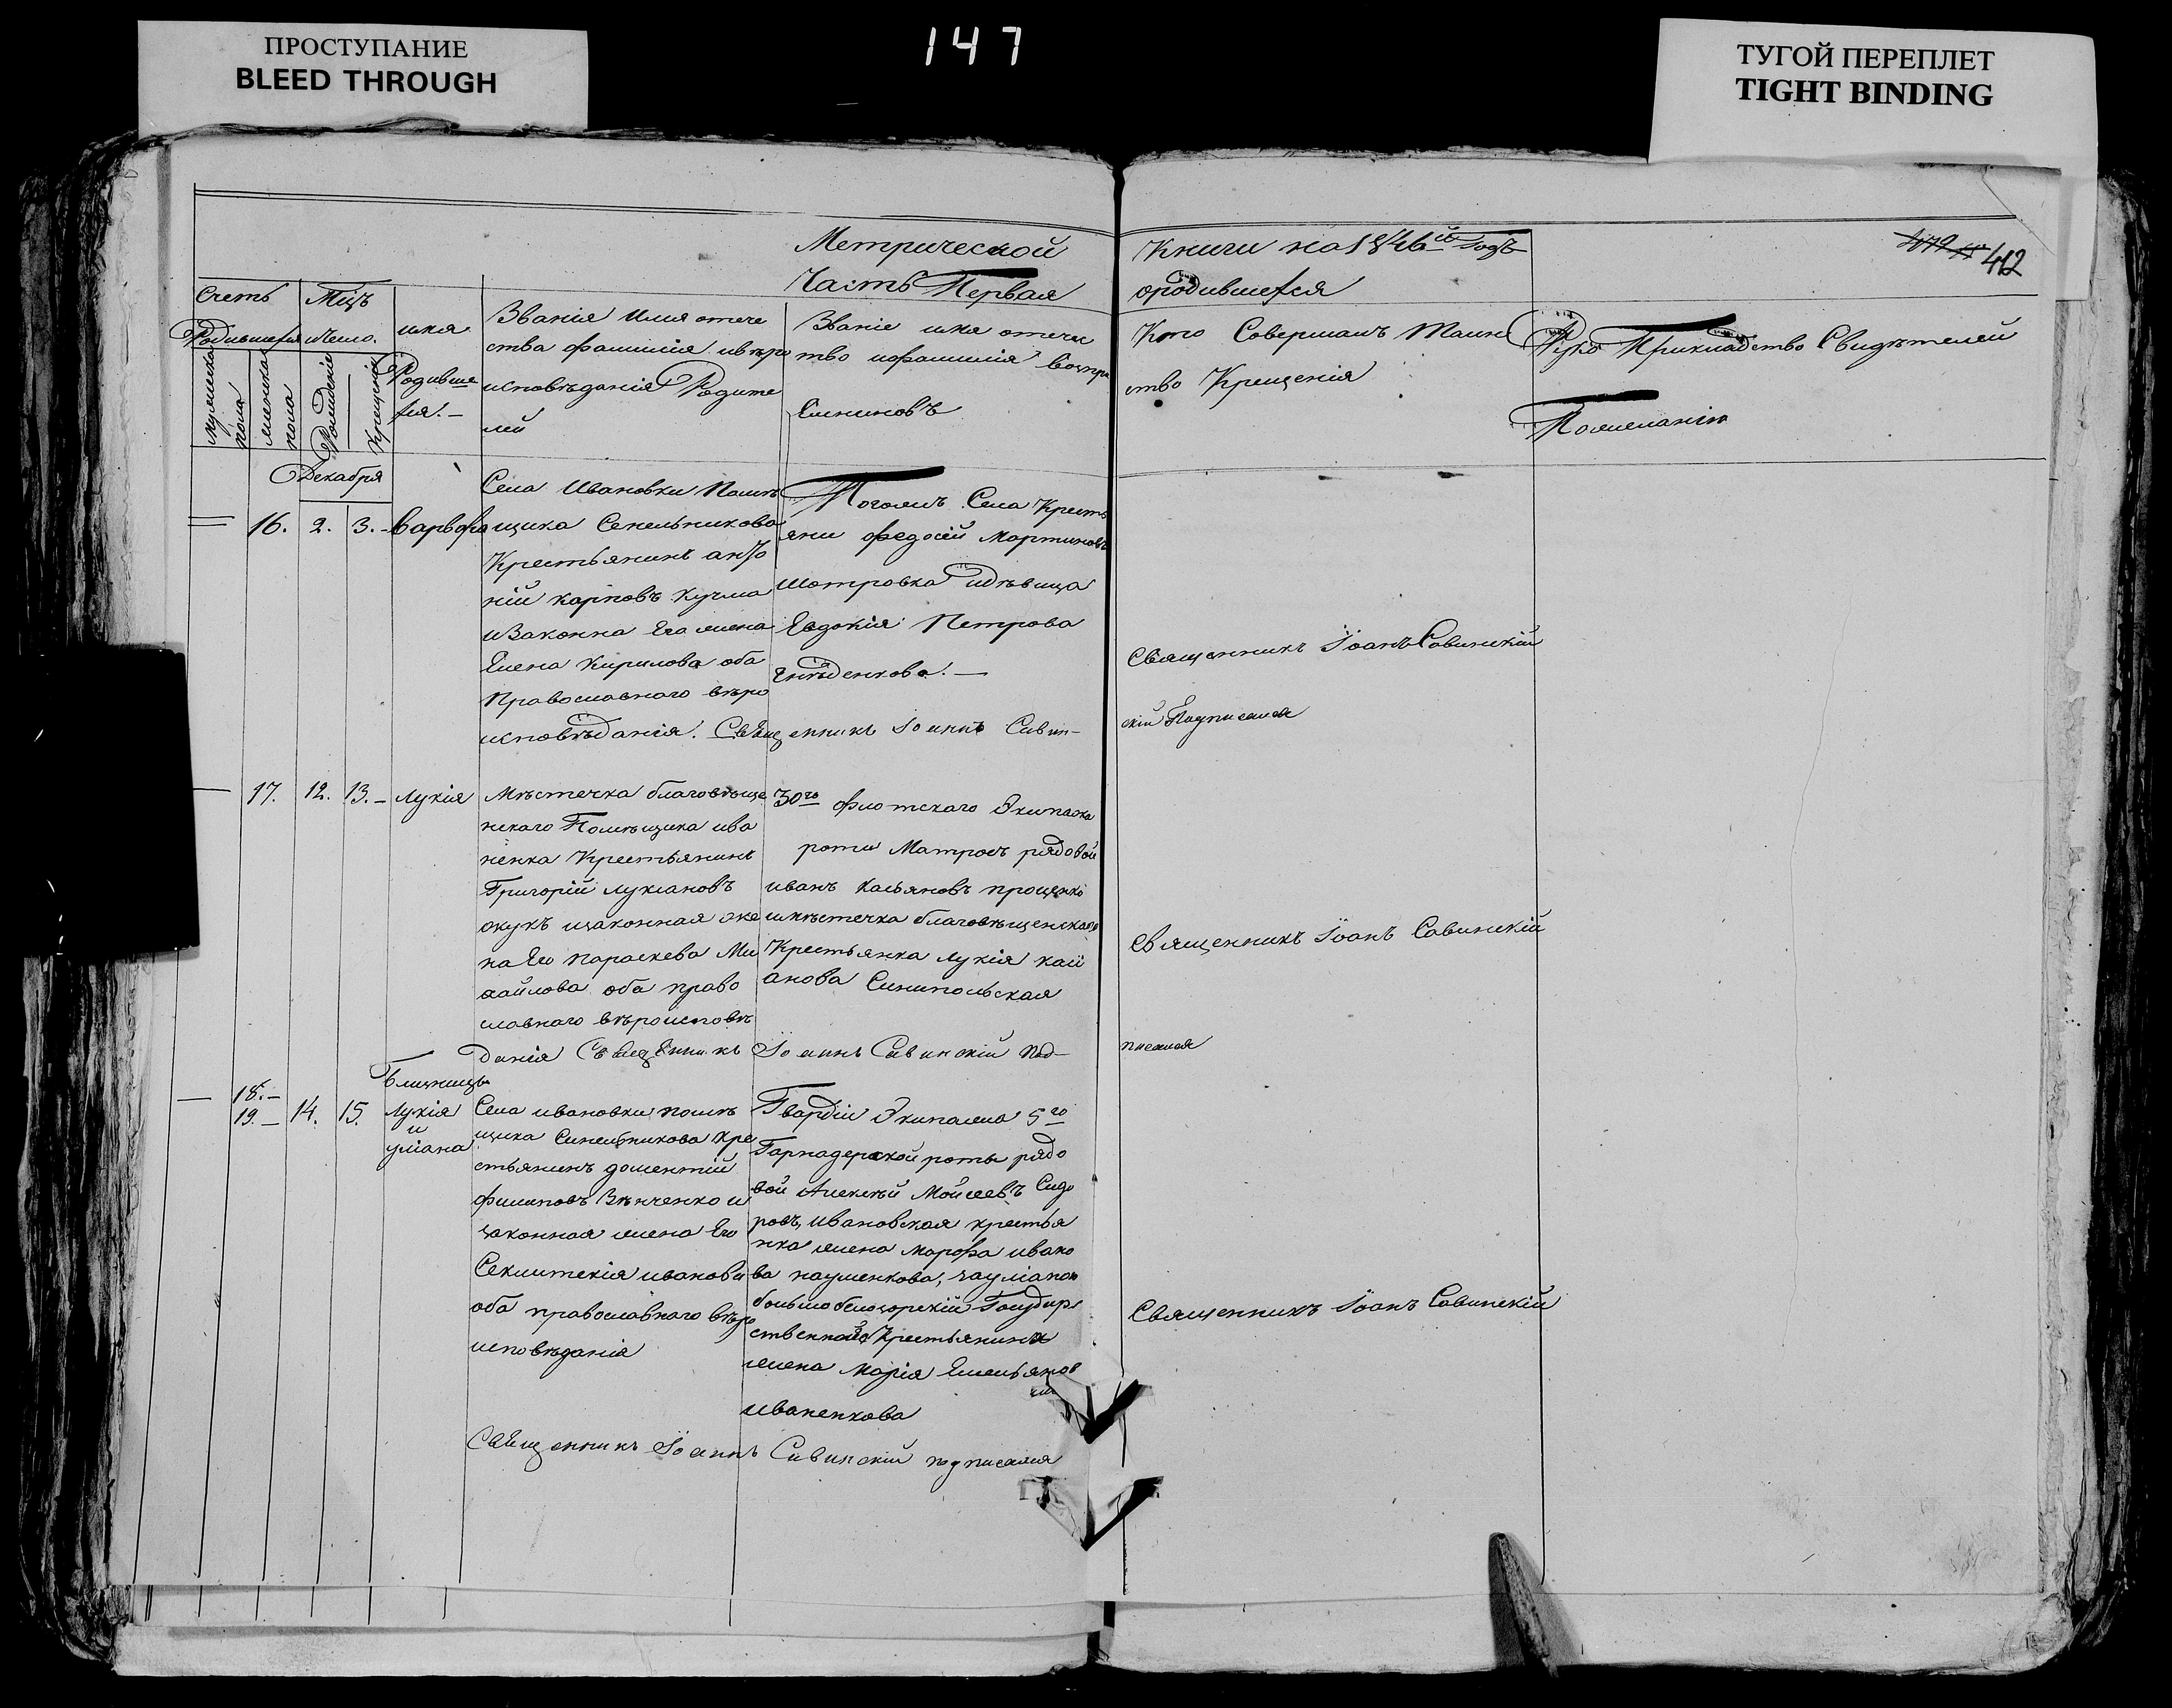 ПРОСТУПАНИЕ
BLEED THROUGH
147
ТУГОЙ ПЕРЕПЛЕТ
TIGHT BINDING
Метрической Книги на 1846й Годъ
412
Часть Первая ородившехся
Счетъ
Родившехся
мужеска пола
женска пола
Мцъ
Число.
Рожденіе
Крещеніе
имя
Родивше
хся. –
Званія Имя отече
ства фамилія ивѣро
исповѣданія Родите
лей
Званіе имя отечес
тво ифамилія Воспри
Емниковъ
Кто Совершалъ Таин
ство Крещенія
Рукоприкладство Свидѣтелей
Пожеланію
Декабря
16. 2. 3. – Варвара
Села Ивановки Помѣ
щика Сенельникова
Крестьянинъ анто
ній карповъ Кучма
иЗаконна Его жена
Елена Кирилова оба
Православнаго вѣро
исповѣданія. Священникъ Іоаннъ Савин–
скій Подписался
Тогожъ Села Кресть
яни федосій Мартиновъ
шатровка идѣвица
Евдокія Петрова
Гнѣденкова. —
Священникъ Іоанъ Савинскій
17. 12. 13. – Лукія
Мѣстечка благовѣще
нскаго Помѣщика ива
ненка Крестьянинъ
Григорій лукіановъ
окукъ изаконная же
на Его параскева Ми
хайлова оба право
славнаго вѣроисповѣ
данія Священникъ Іоаннъ Савинскій под–
писался
30го флотскаго Экипажа
роти Матросъ рядовой
иванъ касьяновъ проценко
имѣстечка благовѣщенскаго
Крестьянка лукія каш
анова Синипольская
Священникъ Іоанъ Савинскій
Близницы
18. –
19. – 14. 15.
Лукія
и
уліана
Села ивановки помѣ
щика Синельникова кре
стьянинъ доментій
филиповъ Вѣнченко и
законная жена Его
Секлитекія иванова
оба православнаго вѣро
исповѣданія
Гвардіи Экипажа 5го
Гарнадерской роты рядо
вой Алексѣй Мойсеевъ Сидо
ровъ, ивановская крестья
нка жена марфа ивано
ва науменкова, зауліанои
больше белозорскій Государ
ственнаго Крестьянина
жена Марія Емельянов
иваненкова
Священникъ Іоанъ Савинскій
Священникъ Іоаннъ Савинскій подписался